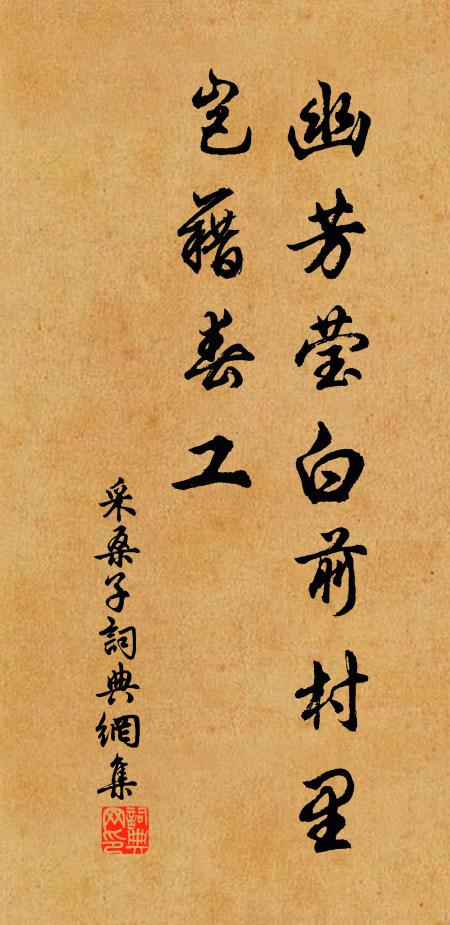 幽芳莹白前村里
岂藉春工
采桑子詞典網集
詞典网印